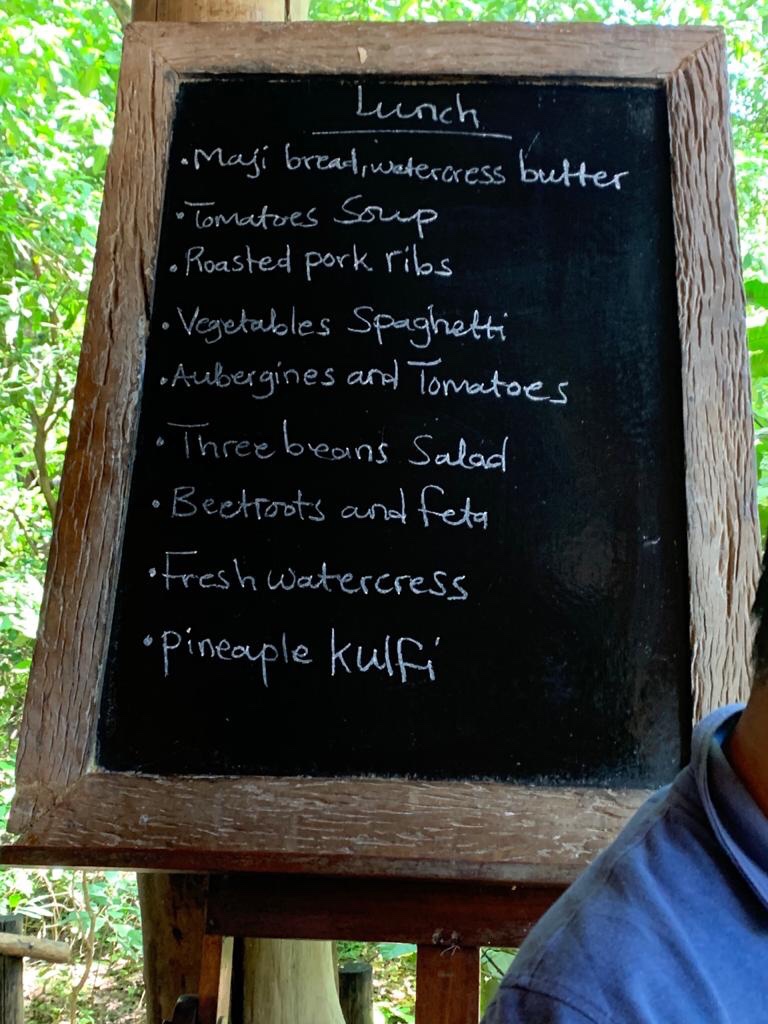 Lunch
• Maji bread, watercress butter
• Tomatoes Soup
• Roasted pork ribs
• Vegetables Spaghetti
• Aubergines and Tomatoes
• Three beans Salad
• Beetroots and feta
• Fresh watercress
• pineaple kulfi